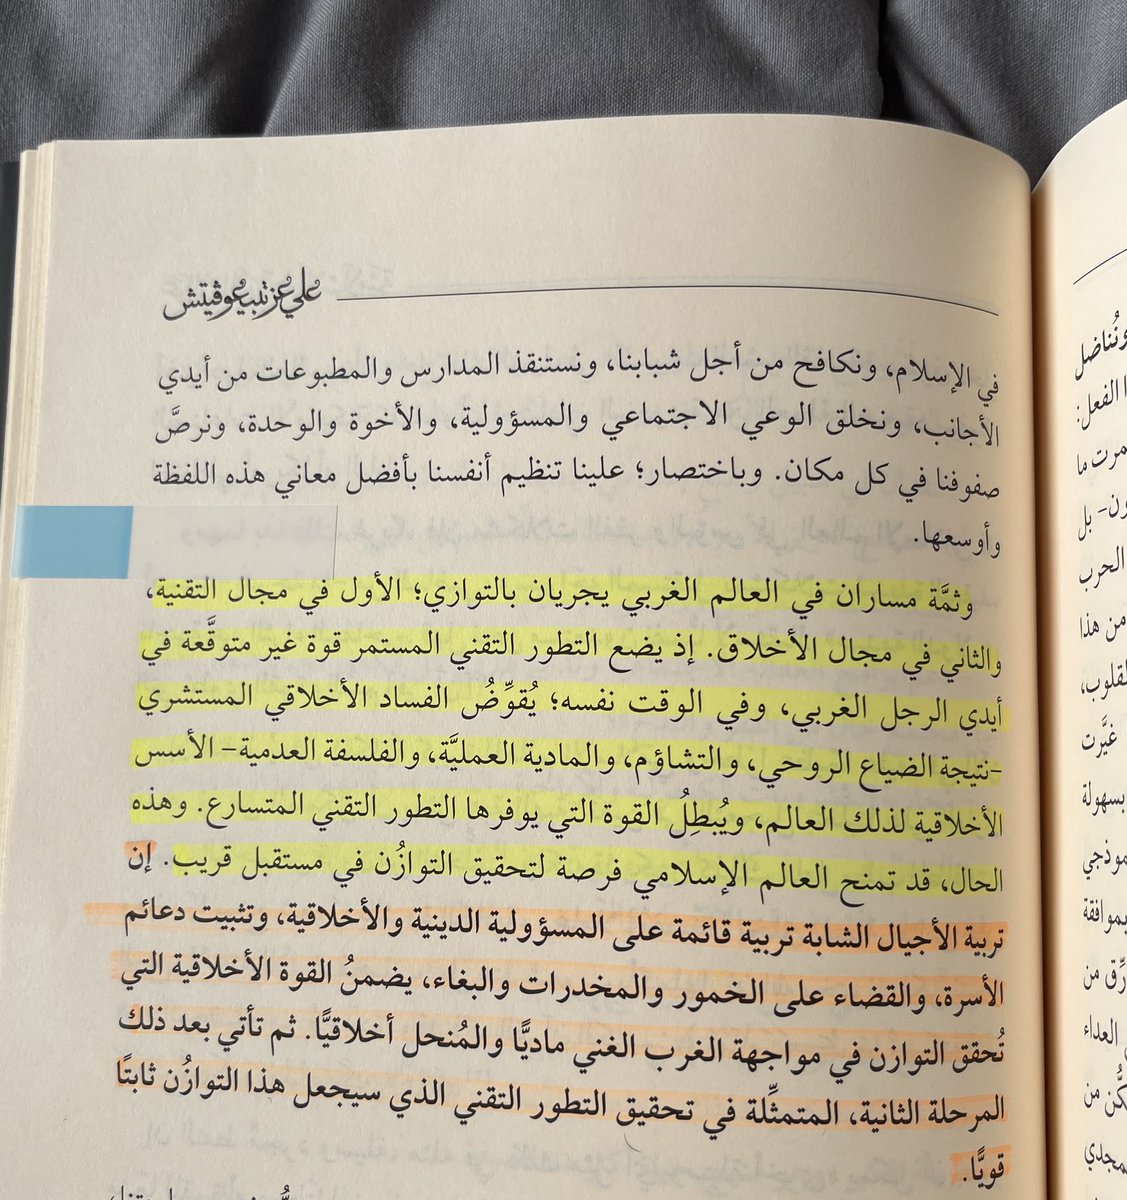 علي عزتبيغوفيتش
في الإسلام، ونكافح من أجل شبابنا، ونستنقذ المدارس والمطبوعات من أيدي
الأجانب، ونخلق الوعي الاجتماعي والمسؤولية، والأخوة والوحدة، ونرصَّ
صفوفنا في كل مكان. وباختصار؛ علينا تنظيم أنفسنا بأفضل معاني هذه اللفظة
وأوسعها.
وثمَّة مساران في العالم الغربي يجريان بالتوازي؛ الأول في مجال التقنية،
والثاني في مجال الأخلاق. إذ يضع التطور التقني المستمر قوة غير متوقَّعة في
أيدي الرجل الغربي، وفي الوقت نفسه؛ يُقوِّضُ الفساد الأخلاقي المستشري
-نتيجة الضياع الروحي، والتشاؤم، والمادية العمليَّة، والفلسفة العدمية- الأسس
الأخلاقية لذلك العالم، ويُبطِلُ القوة التي يوفرها التطور التقني المتسارع. وهذه
الحال، قد تمنح العالم الإسلامي فرصة لتحقيق التوازُن في مستقبل قريب. إن
تربية الأجيال الشابة تربية قائمة على المسؤولية الدينية والأخلاقية، وتثبيت دعائم
الأسرة، والقضاء على الخمور والمخدرات والبغاء، يضمنُ القوة الأخلاقية التي
تُحقق التوازن في مواجهة الغرب الغني ماديًّا والمُنحل أخلاقيًّا. ثم تأتي بعد ذلك
المرحلة الثانية، المتمثِّلة في تحقيق التطور التقني الذي سيجعل هذا التوازُن ثابتًا
قويًّا.
ونُناضل
الفعل:
ما
بل
الحرب
من هذا
غيَّرت
بسهولة
بموافقة
من
العداء
من